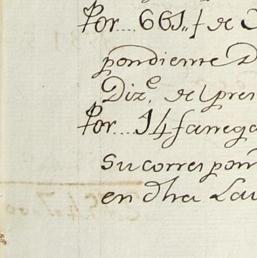 Por.... 661,, f de
pondiente
Diz.e del pres
Por.... 14 fanega
su corres pon
en dha La